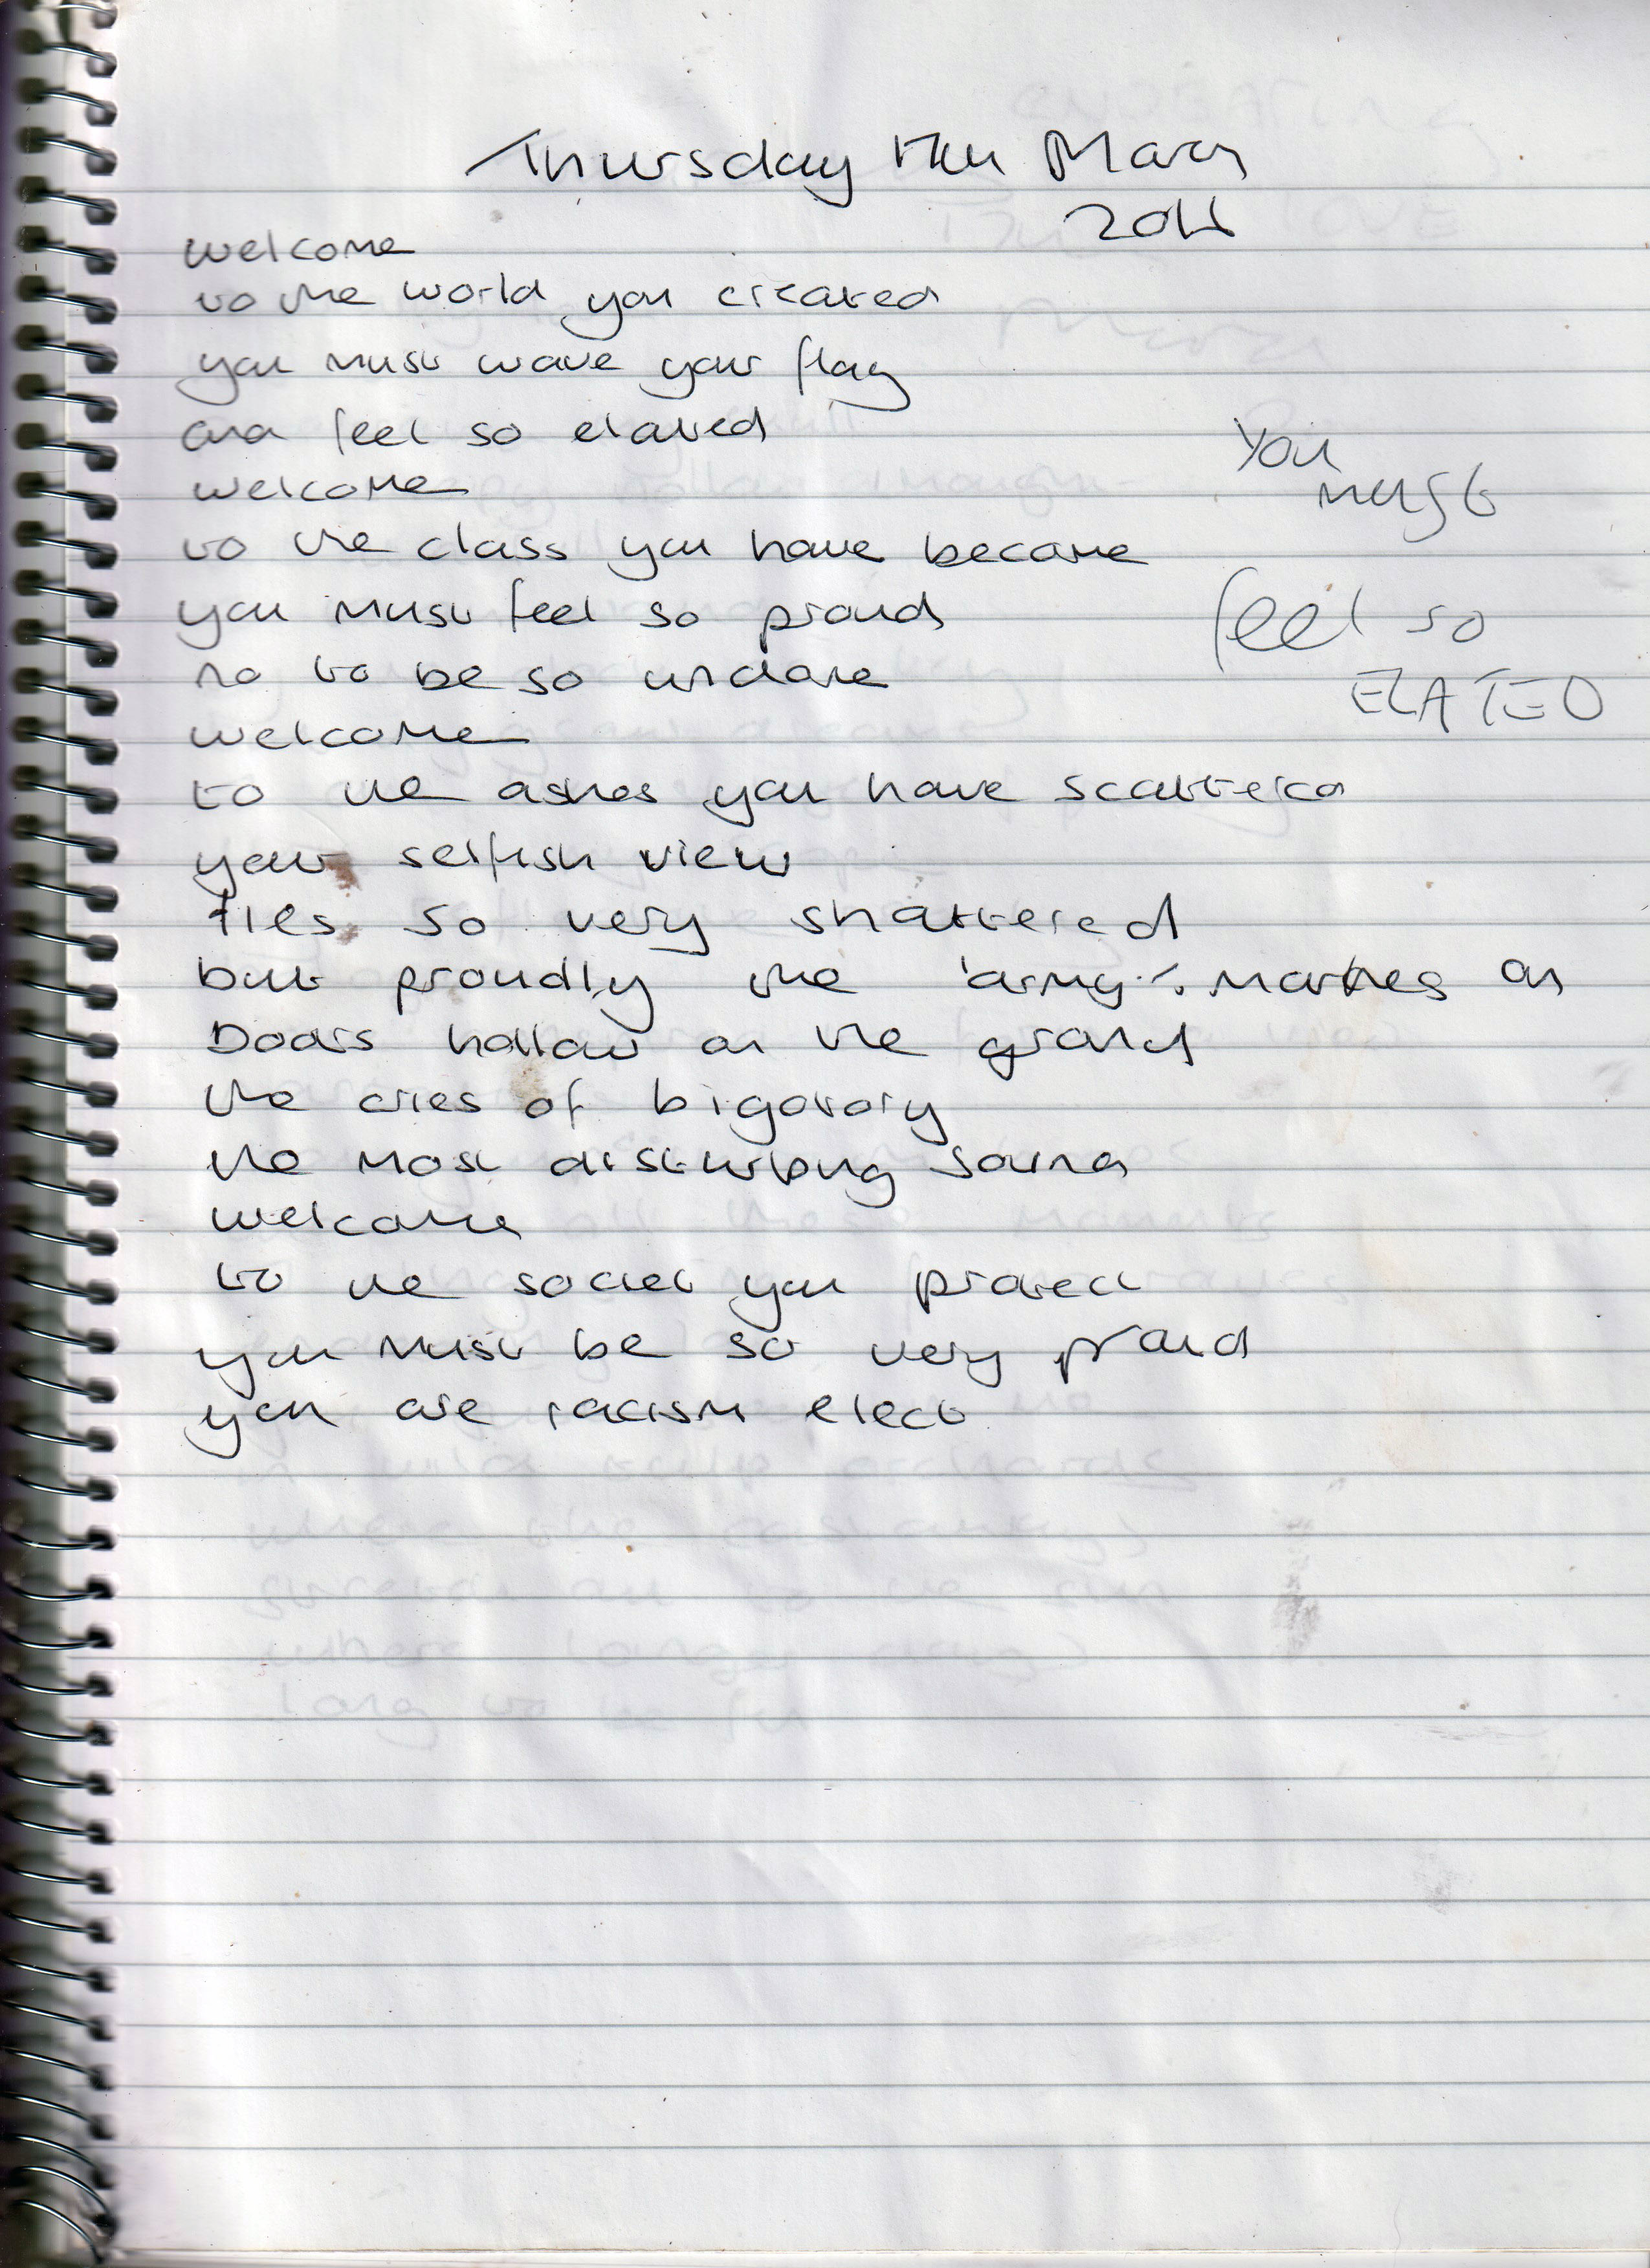 Thursday March
welcome
to the world you created
you must wave your flag
and feel so elated
welcome
to the class you have become
you must feel so proud
no to be so undone
welcome
to the ashes you have scattered
your selfish view
lies so very shattered
but proudly the 'army' marches on
Doors hollow on the ground
the cries of bigotory
the most disturbing sound
welcome
to the societ you protect
you must be so very proud
you are racism elect
You
must
feel so
ELATED